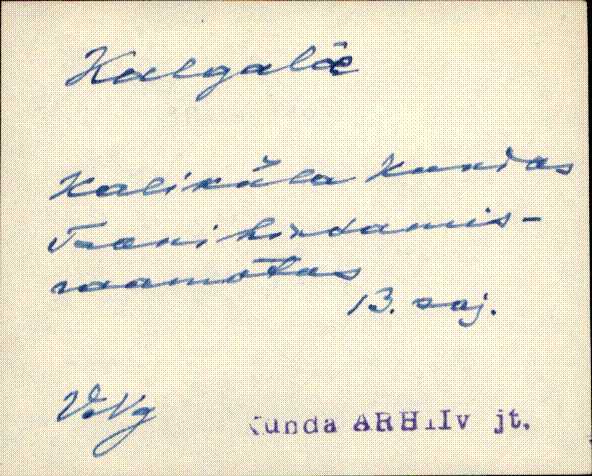 Kalgalæ
Kaliküla Kundas
Taani hindamis-
raamatus
13. saj.
V.Ng
Kunda ARHIIV jt.